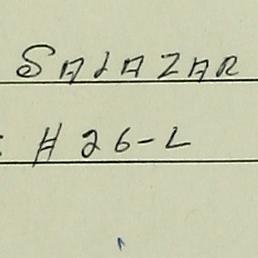 SALAZAR
: #26-L